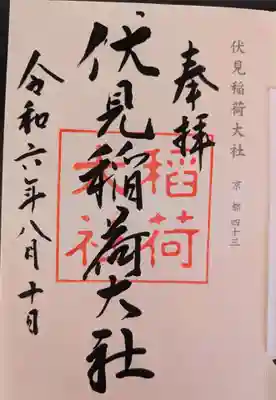 伏見稲荷大社
京都四十三
奉拝
伏見稲荷大社
稲荷
大社
令和六年八月十日